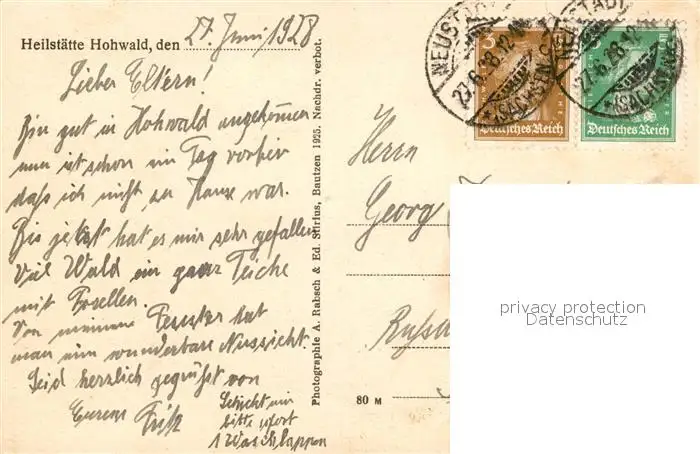 Heilstätte Hohwald, den 27. Juni 1928
Lieber Eltern!
Bin gut in Hohwald angekommen
nun ist schon ein Tag vorbei
daß ich nicht zu Hause war.
Bis jetzt hat es mir sehr gefallen
Viel Wald ein ganz Teiche
mit Forellen.
Von meinem Fenster hat
man eine wunderbare Aussicht.
Seid herzlich gegrüßt von
Eurem Fritz
Schickt mir
bitte sofort
1 Waschlappen
Photographie A. Rabsch & Ed. Stirius, Bautzen 1925. Nachdr. verbot.
NEUSTADT
27.6.28.12
(SACHSEN)
NEUSTADT
27.6.28.12
(SACHSEN)
3
5
Deutsches Reich
Deutsches Reich
Herrn
Georg
80 M
privacy protection
Datenschutz